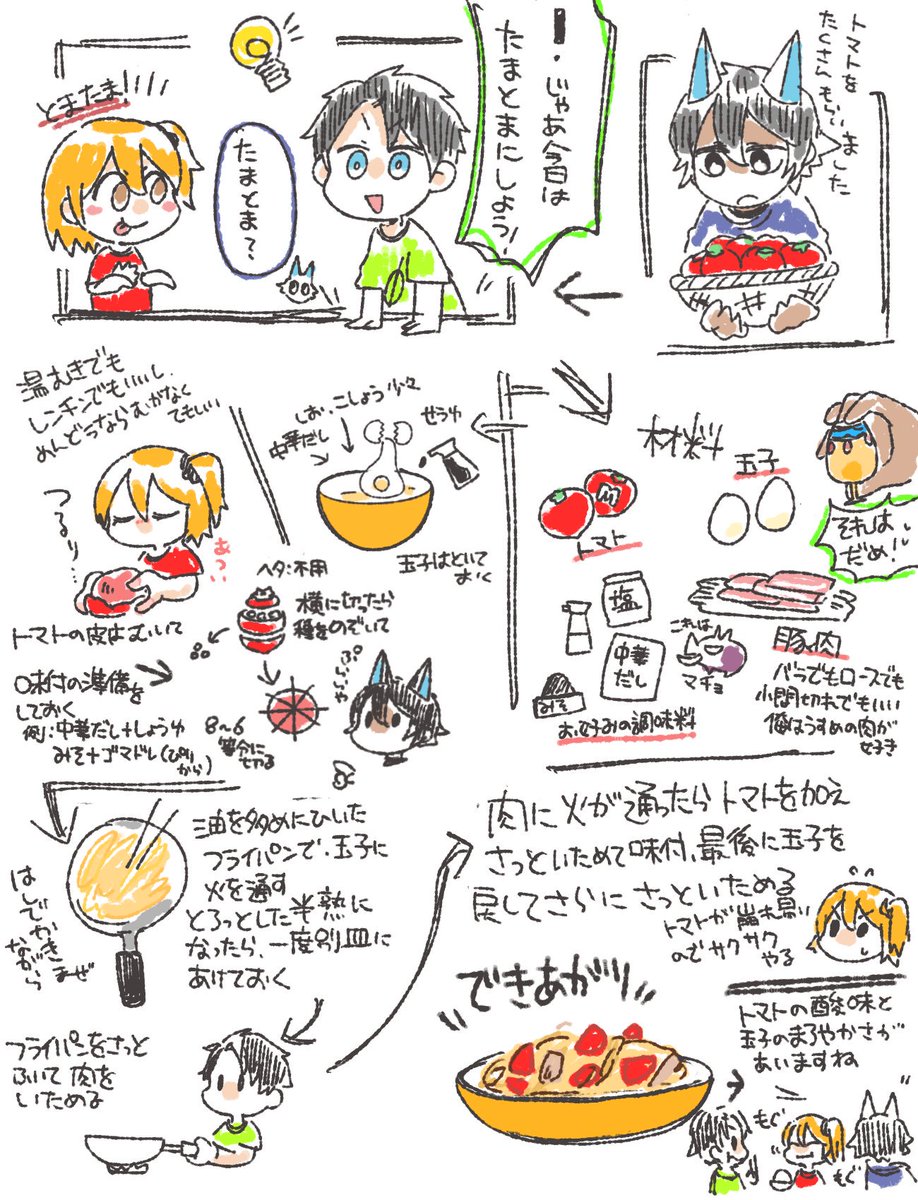 トマトを
たくさんもらいました
!・じゃあ今日は
たまとまにしよう!
たまとま?
とまたま!
材料
トマト
玉子
それは
だめ!
塩
中華
だし
みそ
お好みの調味料
これは
マチョ
豚肉
バラでもロースでも
小間切れでもいい
俺はうすめの肉が
好き
しお、こしょう少々
中華だし
せうゆ
玉子はといて
おく
湯むきでも
レンチンでもいいし、
めんどうならむかなく
てもいい
つるり
あつい
トマトの皮はむいて
ヘタ:不用
横に切ったら
種をのぞいて
8〜6
等分に
切る
味付の準備を
しておく
例:中華だし+しょうゆ
みそ+ゴマドレ(ぴり
から)
油を多めにひいた
フライパンで、玉子に
火を通す
とろっとした半熟に
なったら、一度別皿に
あけておく
はしでかきまぜ
ながら
フライパンをさっと
ふいて肉を
いためる
肉に火が通ったらトマトを加え
さっといためて味付、最後に玉子を
戻してさらにさっといためる
トマトが崩れ易い
のでサクサク
やる
できあがり
トマトの酸味と
玉子のまろやかさが
あいますね
もぐ
もぐ